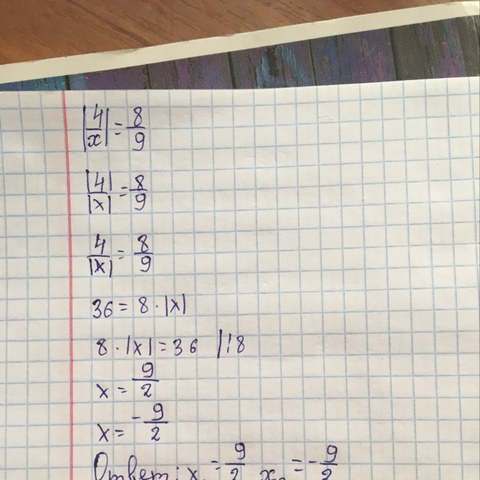 |4/x| = 8/9
|4|/|x| = 8/9
4/|x| = 8/9
36 = 8 · |x|
8 · |x| = 36 |:8
x = 9/2
x = -9/2
Ответ: x = 9/2 x = -9/2